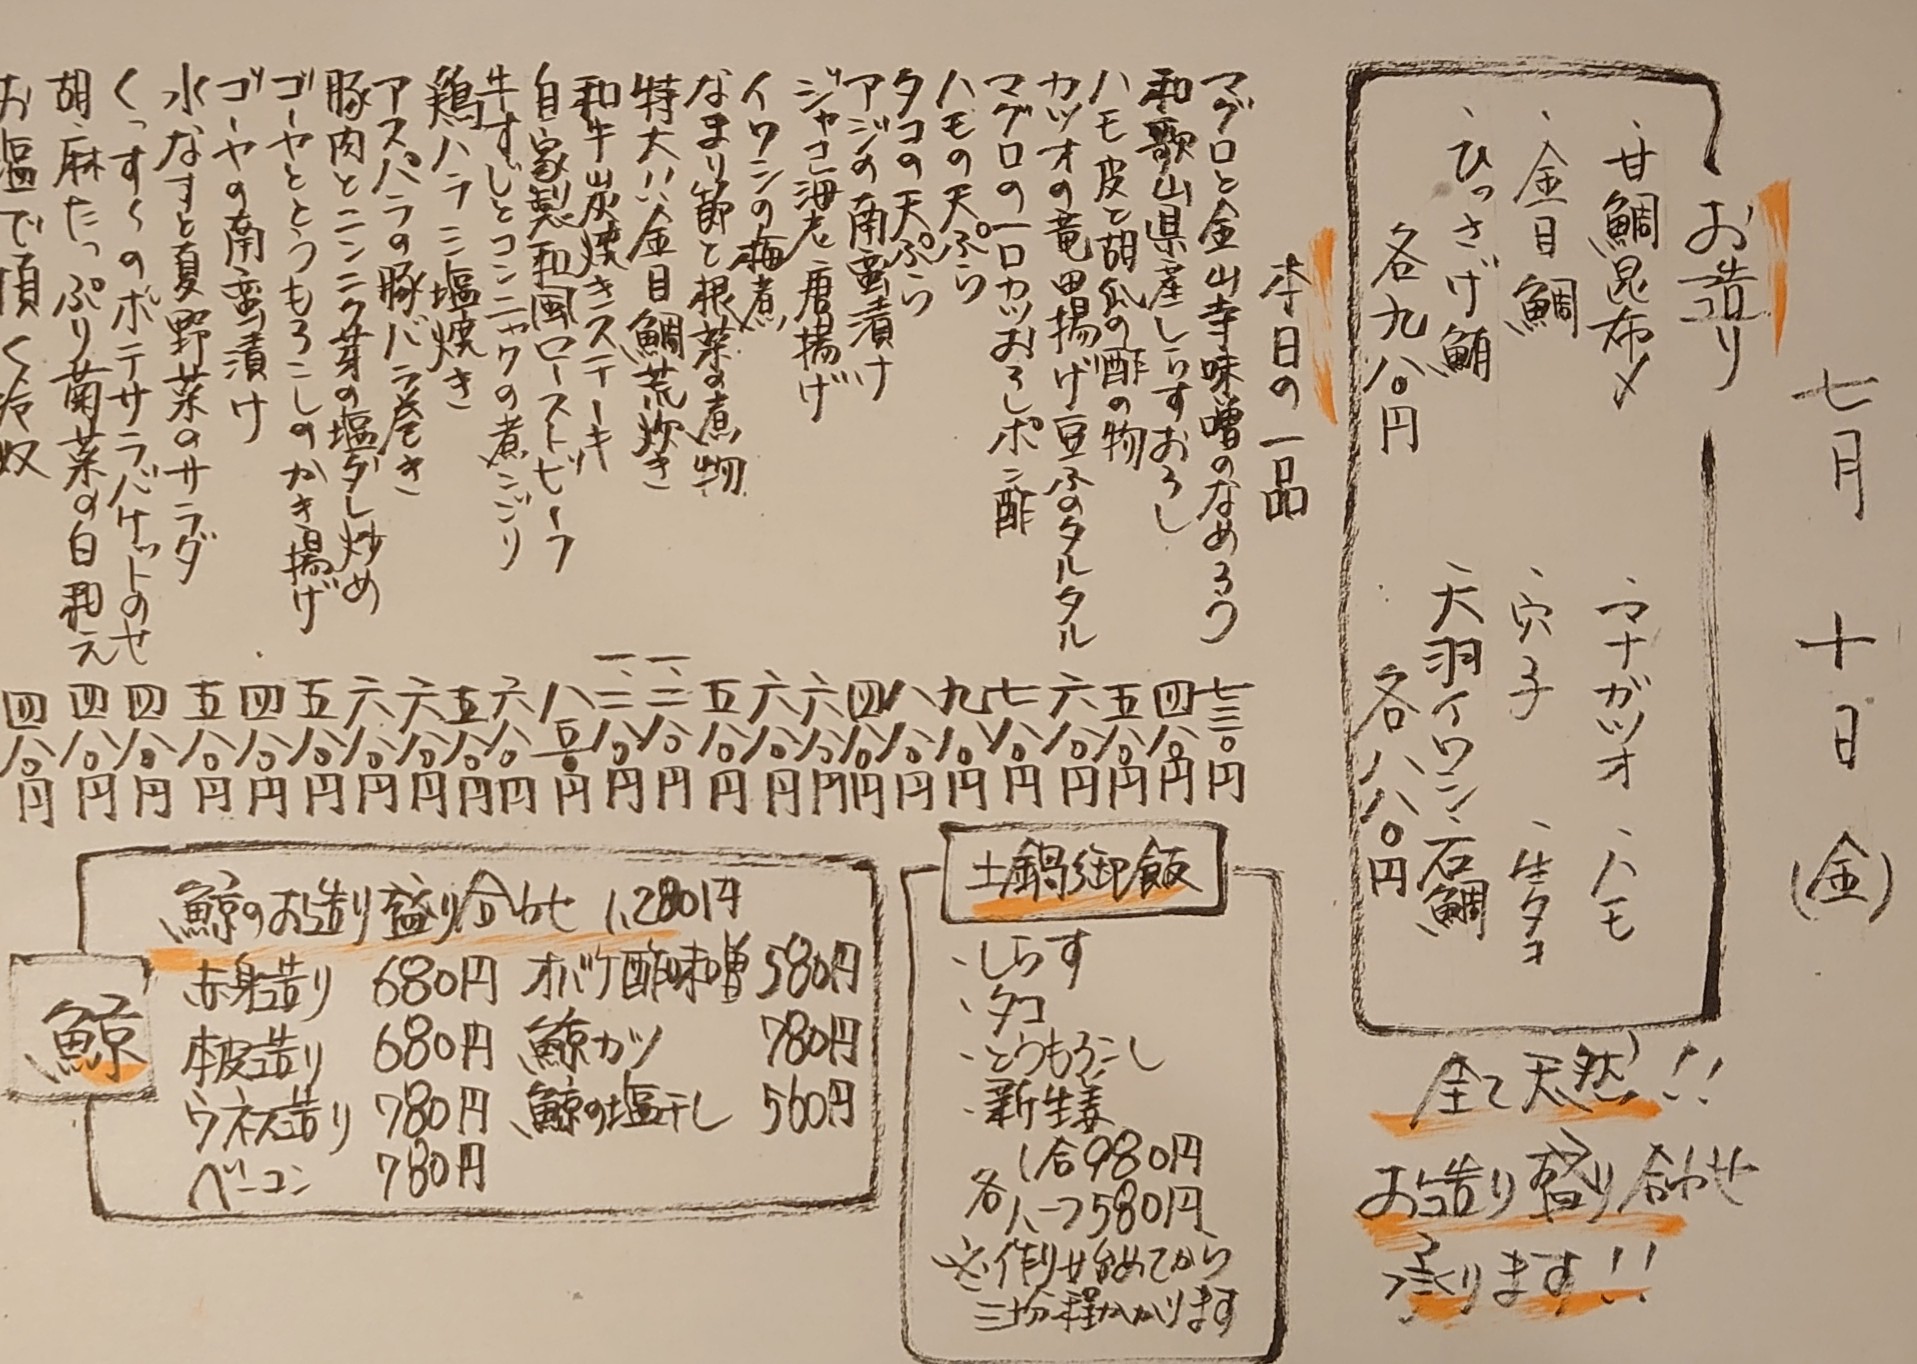 七月 十日 (金)
お造り
、甘鯛昆布〆 、マナガツオ 、ハモ
、金目鯛 、穴子 、生タコ
、ひっさげ鮪 、大羽イワシ 石鯛
各九八〇円 各八八〇円
全て天然!!
お造り盛り合わせ
承ります!!
本日の一品
マグロと金山寺味噌のなめろう 七三〇円
和歌山県産しらすおろし 四八〇円
ハモ皮と胡瓜の酢の物 五八〇円
カツオの竜田揚げ豆ふのタルタル 六八〇円
マグロの一口カツおろしポン酢 七八〇円
ハモの天ぷら 九八〇円
タコの天ぷら 八八〇円
アジの南蛮漬け 四八〇円
ジャコ海老唐揚げ 六八〇円
イワシの梅煮 六八〇円
なまり節と根菜の煮物 五八〇円
特大!!金目鯛荒炊き 一、二八〇円
和牛炭焼きステーキ 一、二八〇円
自家製和風ローストビーフ 八五〇円
牛すじとコンニャクの煮こごり 六八〇円
鶏ハラミ塩焼き 五八〇円
アスパラの豚バラ巻き 六八〇円
豚肉とニンニク芽の塩ダレ炒め 六八〇円
ゴーヤととうもろこしのかき揚げ 五八〇円
ゴーヤの南蛮漬け 四八〇円
水なすと夏野菜のサラダ 五八〇円
くっすくのポテサラバケットのせ 四八〇円
胡麻たっぷり菊菜の白和え 四八〇円
お塩で頂く冷奴 四八〇円
土鍋御飯
、しらす
、タコ
、とうもろこし
、新生姜
各 1合980円
ハーフ580円
※作り始めてから
三十分程かかります
鯨
鯨のお造り盛り合わせ 1,280円
赤身造り 680円 オバケ酢味噌 580円
本皮造り 680円 鯨カツ 780円
ウネス造り 780円 鯨の塩干し 560円
ベーコン 780円